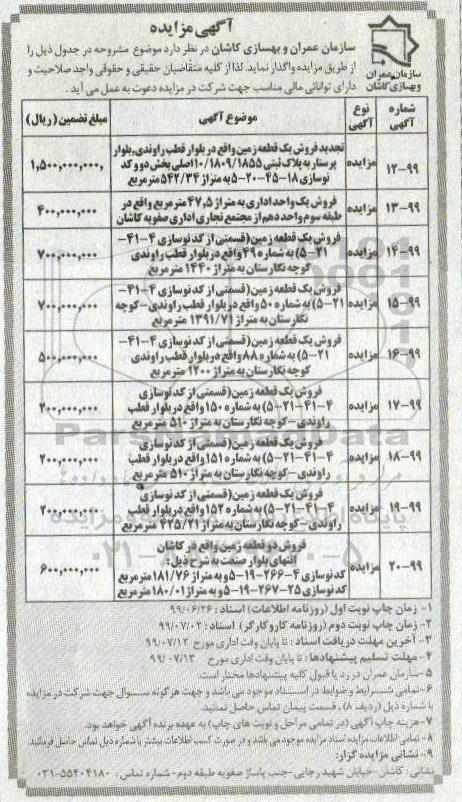 آگهی مزایده
سازمان عمران و بهسازی کاشان در نظر دارد موضوع مشروحه در جدول ذیل را
از طریق مزایده واگذار نماید. لذا از کلیه متقاضیان حقیقی و حقوقی واجد صلاحیت و
دارای توانائی مالی مناسب جهت شرکت در مزایده دعوت به عمل می آید.
سازمان عمران
و بهسازی کاشان
شماره آگهی | نوع آگهی | موضوع آگهی | مبلغ تضمین (ریال)
۱۲-۹۹ | مزایده | تجدید فروش یک قطعه زمین واقع در بلوار قطب راوندی، بلوار
پرستار به پلاک ثبتی ۱۰/۱۸۰۹/۱۸۵۵ اصلی بخش دو و کد
نوسازی ۱۸-۴۵-۲۰-۵ به متراژ ۵۴۲/۳۴ مترمربع | ۱,۵۰۰,۰۰۰,۰۰۰,
۱۳-۹۹ | مزایده | فروش یک واحد اداری به متراژ ۴۷,۵ مترمربع واقع در
طبقه سوم واحد دهم از مجتمع تجاری اداری صفویه کاشان | ۴۰۰,۰۰۰,۰۰۰
۱۴-۹۹ | مزایده | فروش یک قطعه زمین (قسمتی از کد نوسازی ۴-۴۱-
۲۱-۵) به شماره ۴۹ واقع در بلوار قطب راوندی
کوچه نگارستان به متراژ ۱۴۴۰ مترمربع | ۷۰۰,۰۰۰,۰۰۰
۱۵-۹۹ | مزایده | فروش یک قطعه زمین (قسمتی از کد نوسازی ۴-۴۱-
۲۱-۵) به شماره ۵۰ واقع در بلوار قطب راوندی-کوچه
نگارستان به متراژ ۱۳۹۱/۷۱ مترمربع | ۷۰۰,۰۰۰,۰۰۰
۱۶-۹۹ | مزایده | فروش یک قطعه زمین (قسمتی از کد نوسازی ۴-۴۱-
۲۱-۵) به شماره ۸۸ واقع در بلوار قطب راوندی
کوچه نگارستان به متراژ ۱۲۰۰ مترمربع | ۵۰۰,۰۰۰,۰۰۰
۱۷-۹۹ | مزایده | فروش یک قطعه زمین (قسمتی از کد نوسازی
۴-۴۱-۲۱-۵) به شماره ۱۵۰ واقع در بلوار قطب
راوندی-کوچه نگارستان به متراژ ۵۱۰ مترمربع | ۲۰۰,۰۰۰,۰۰۰
۱۸-۹۹ | مزایده | فروش یک قطعه زمین (قسمتی از کد نوسازی
۴-۴۱-۲۱-۵) به شماره ۱۵۱ واقع در بلوار قطب
راوندی-کوچه نگارستان به متراژ ۵۱۰ مترمربع | ۲۰۰,۰۰۰,۰۰۰
۱۹-۹۹ | مزایده | فروش یک قطعه زمین (قسمتی از کد نوسازی
۴-۴۱-۲۱-۵) به شماره ۱۵۲ واقع در بلوار قطب
راوندی-کوچه نگارستان به متراژ ۴۲۵/۲۱ مترمربع | ۲۰۰,۰۰۰,۰۰۰
۲۰-۹۹ | مزایده | فروش دو قطعه زمین واقع در کاشان
انتهای بلوار صنعت به شرح ذیل:
کد نوسازی ۴-۲۶۶-۱۹-۵ و به متراژ ۱۸۱/۷۶ مترمربع
کد نوسازی ۲۵-۲۶۷-۱۹-۵ و به متراژ ۱۸۰/۰۱ مترمربع | ۶۰۰,۰۰۰,۰۰۰
۱- زمان چاپ نوبت اول (روزنامه اطلاعات) اسناد: ۹۹/۰۶/۲۶
۲- زمان چاپ نوبت دوم (روزنامه کار و کارگر) اسناد: ۹۹/۰۷/۰۲
۳- آخرین مهلت دریافت اسناد: تا پایان وقت اداری مورخ ۹۹/۰۷/۱۲
۴- مهلت تسلیم پیشنهادها: تا پایان وقت اداری مورخ ۹۹/۰۷/۱۳
۵- سازمان عمران در رد یا قبول کلیه پیشنهادها مختار است.
۶- تمامی شرایط و ضوابط در اسناد موجود می باشد و جهت هرگونه سوال جهت شرکت در مزایده
با شماره ذیل (ردیف ۸)، قسمت پیمان تماس حاصل نمائید.
۷- هزینه چاپ آگهی (در تمامی مراحل و نوبت های چاپ) به عهده برنده آگهی خواهد بود.
۸- تمامی اطلاعات مزایده اسناد مزایده موجود می باشد و در صورت کسب اطلاعات بیشتر با شماره ذیل تماس حاصل فرمائید.
۹- نشانی مزایده گزار:
نشانی: کاشان-خیابان شهید رجایی-جنب پاساژ صفویه طبقه دوم-شماره تماس: ۵۵۴۰۴۱۸۰-۰۳۱